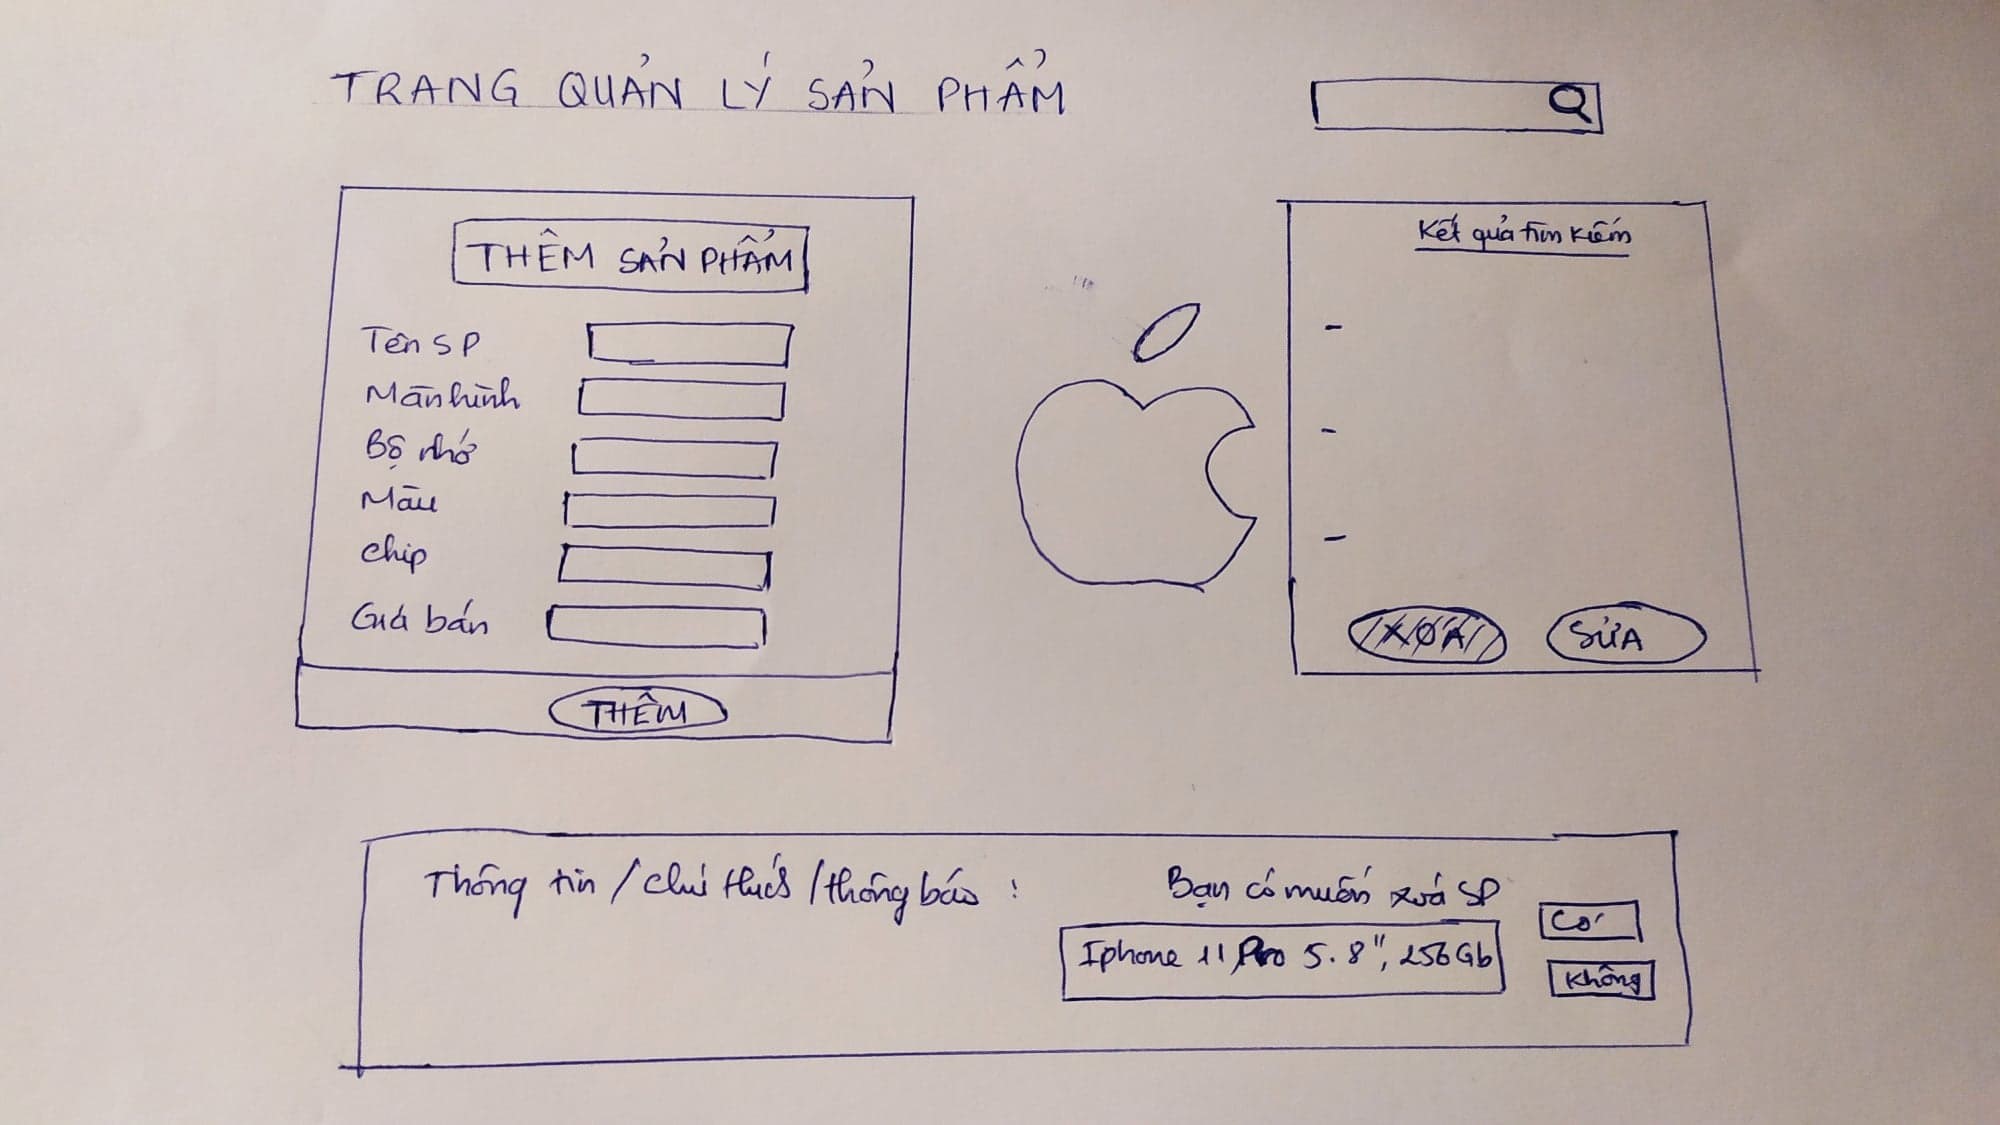 TRANG QUẢN LÝ SẢN PHẨM
THÊM SẢN PHẨM
Tên SP
Màn hình
Bộ nhớ
Màu
Chip
Giá bán
THÊM
Kết quả tìm kiếm
-
-
-
XOÁ
SỬA
Thông tin / chú thích / thông báo :
Bạn có muốn xoá SP
Iphone 11 Pro 5.8", 256Gb
Có
Không